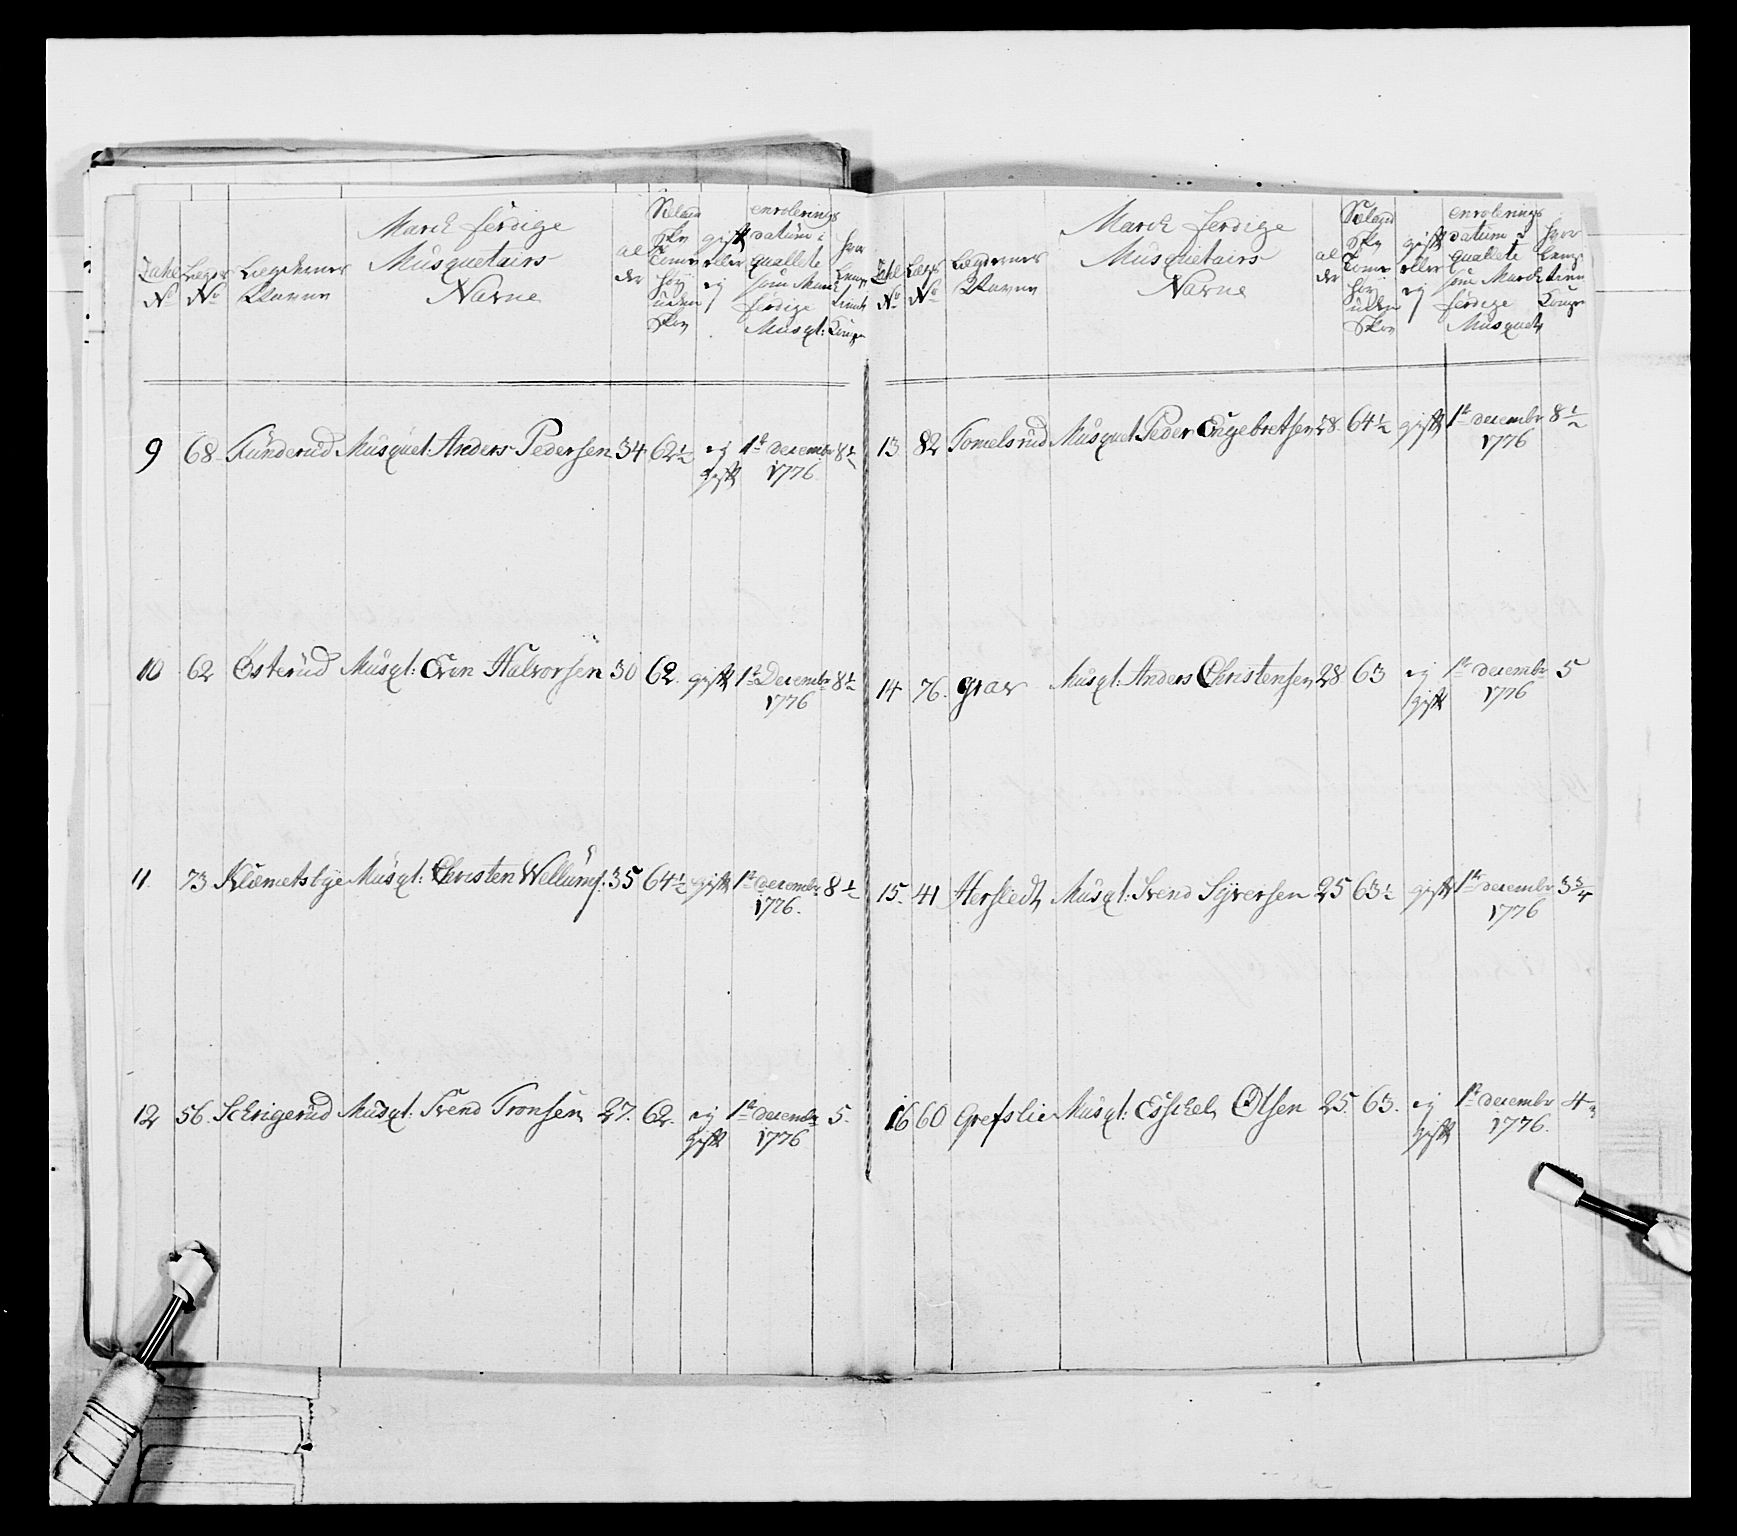 Zahl N° Lægs N° Lægdernes Navne March ferdige Musquetairs Navne al der gift eller ej enrolerings datum i quallete som March ferdige Musqt:
9 68 Funderud Musquet: Anders Pedersen 34 62½ ej gift 1te decembr 1776 8½
10 62 Østerud Musqt: Even Halvorsen 30 62. gift 1te Decembr 1776 8½
11 73 Klæmetsbye Musqt: Christen Wellums: 35 64½ gift 1te decembr 1776. 8½
12 56. Schrigerud Musqt: Svend Tronsen 27. 62. ej gift 1te decembr 1776 5.
Zahl N° Lægs N° Lægdernes Navne March ferdige Musquetairs Navne al der gift eller ej enrolerings datum i quallete som March ferdige Musquet
13 82 Tomelsrud Musquet Peder Engebretsen 28 64½ gift 1te decembr 1776 8½
14 76. Grav Musqt: Anders Christensen 28 63 ej gift 1te decembr 1776 5
15. 41 Hersledt Musqt: Svend Syversen 25 63½ gift 1te decembr 1776 3¾
16 60 Grefslie Musqt: Esschel Olsen 25. 63. ej gift 1te decembr 1776. 4